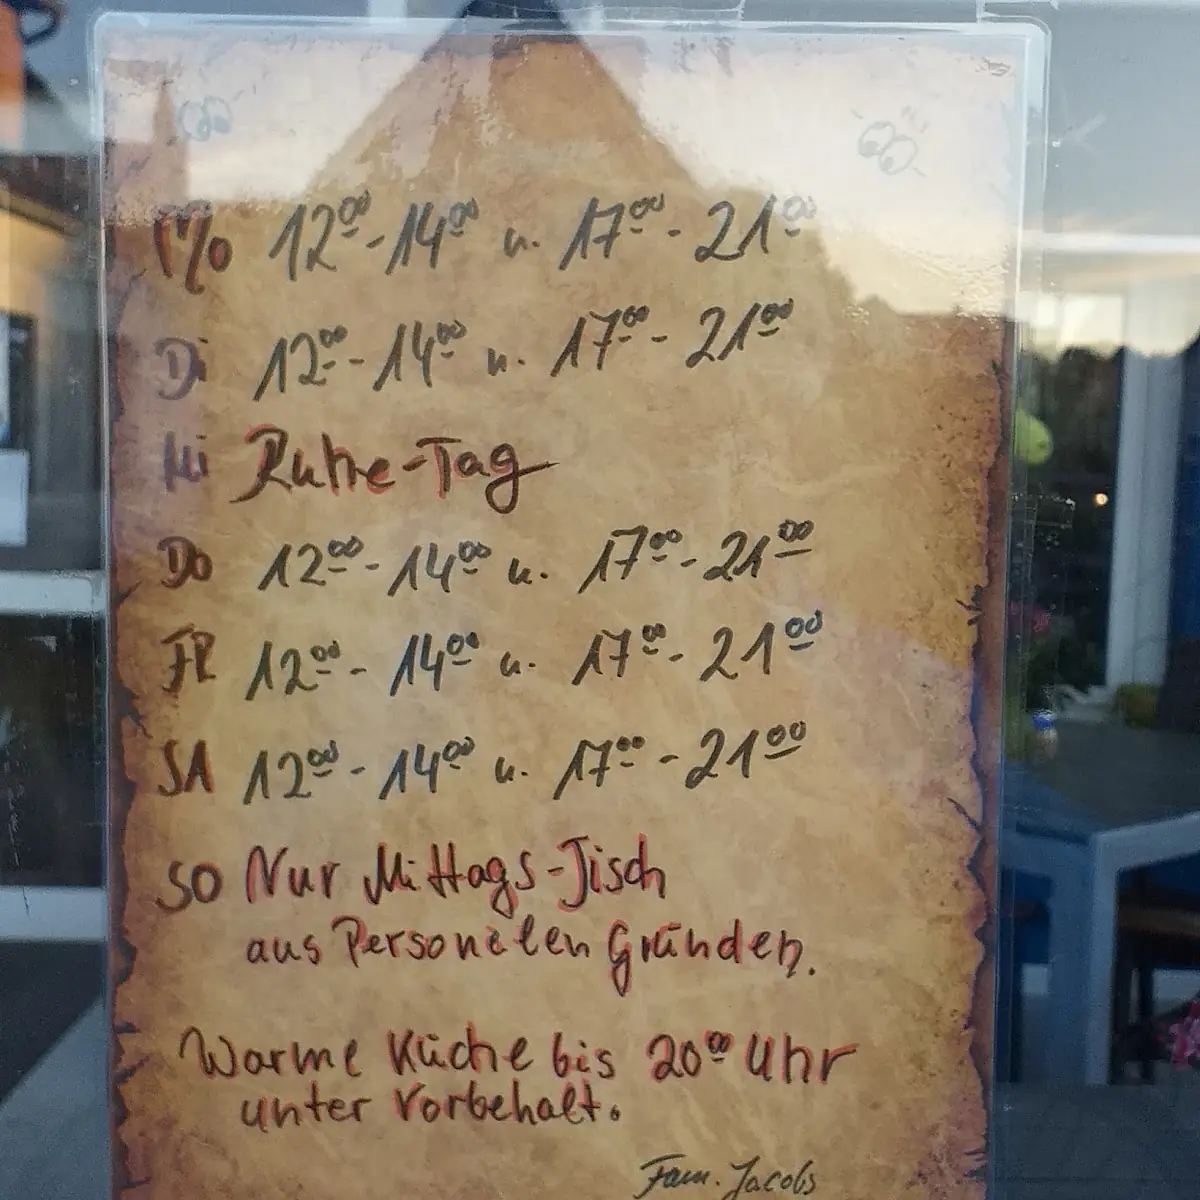 Mo 12⁰⁰-14⁰⁰ u. 17⁰⁰-21⁰⁰
Di 12⁰⁰-14⁰⁰ u. 17⁰⁰-21⁰⁰
Mi Ruhe-Tag
Do 12⁰⁰-14⁰⁰ u. 17⁰⁰-21⁰⁰
FR 12⁰⁰-14⁰⁰ u. 17⁰⁰-21⁰⁰
SA 12⁰⁰-14⁰⁰ u. 17⁰⁰-21⁰⁰
SO Nur Mittags-Tisch
aus Personelen Gründen.
Warme Küche bis 20⁰⁰ Uhr
unter Vorbehalt.
Fam. Jacobs